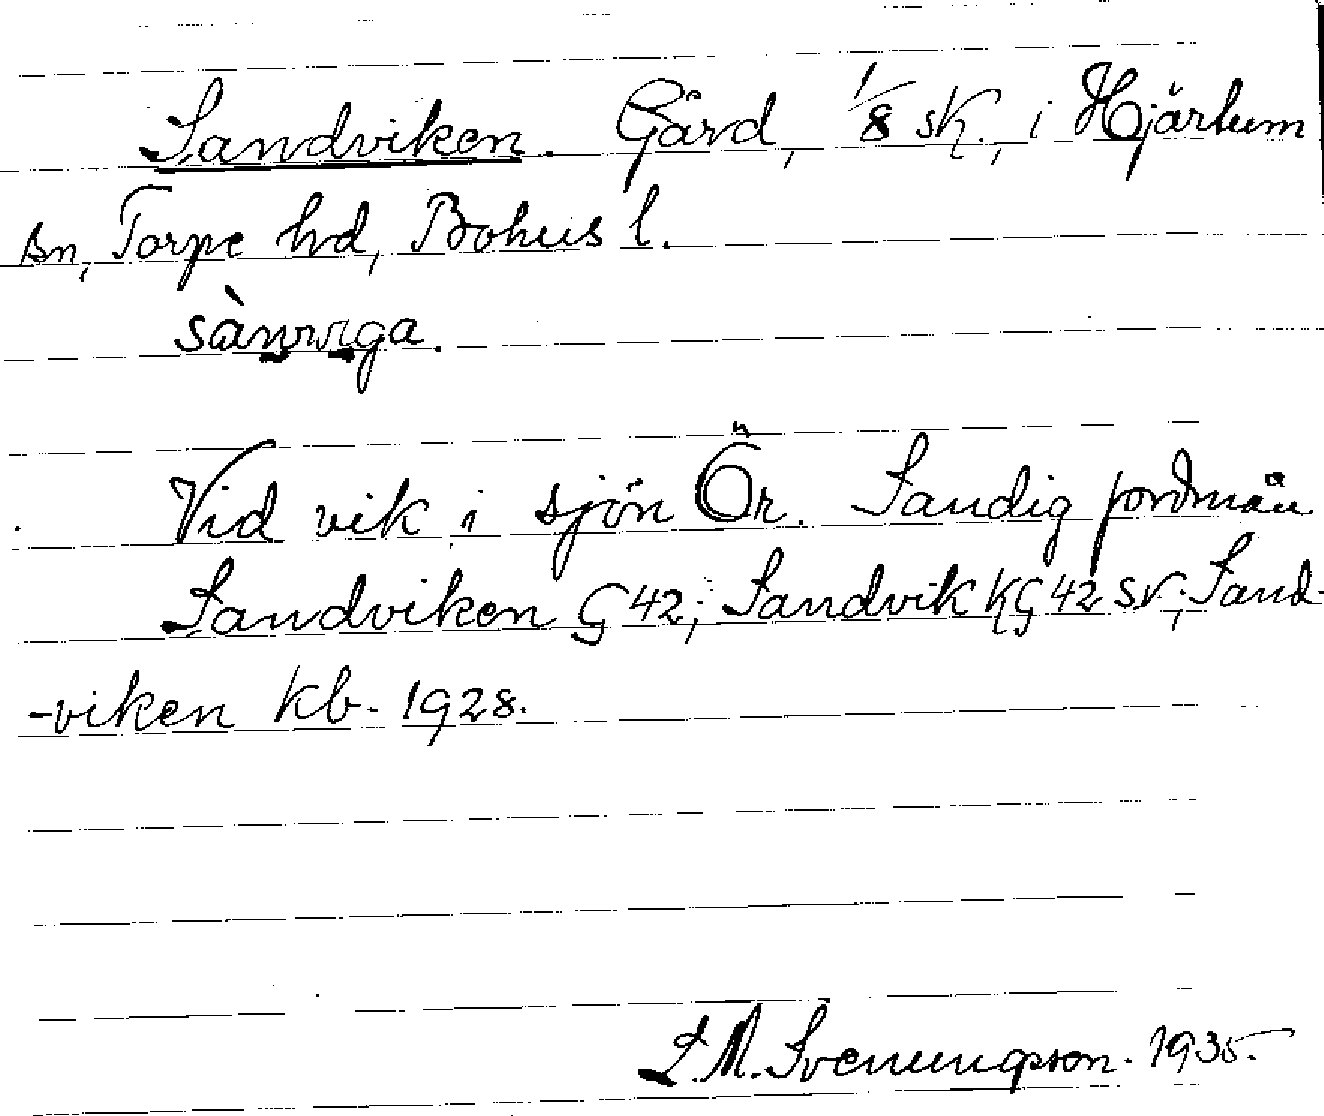 Sandviken. Gård, 1/8 sk., i Hjärtum
sn, Torpe hd, Bohus l.
sànvıga.
Vid vik i sjön Ör. Sandig jordmån
Sandviken G 42; Sandvik KG 42 SV; Sand-
-viken kb. 1928.
L. M. Svenungsson. 1935.